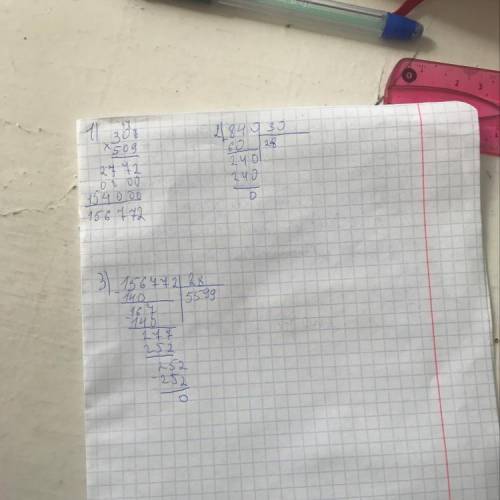 1) 7
308
×509
2772
0 0 00
154 0 00
156 772
2) 840 30
60 28
240
240
0
3) 156772 28
-140 5599
167
-140
277
252
252
-252
0